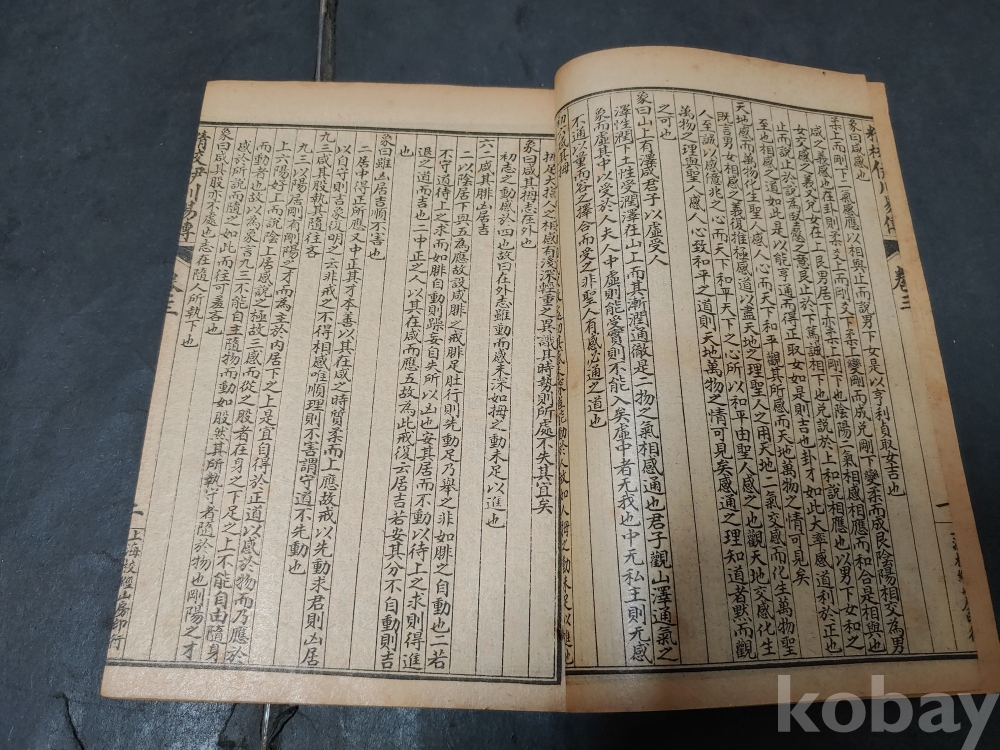 彖曰咸感也
柔上而剛下二氣感應以相與止而說男下女是以亨利貞取女吉也
咸之義感也在卦則柔爻上而剛爻下柔上變剛而成兌剛下變柔而成艮陰陽相交為男
女交感之義又男女在上艮男居下亦柔上剛下也陰陽二氣相感相應而和合是相與也
止而說止於說為堅慤之意艮止於下篤誠相下也兌說於上和說相應也以男下女和之
至也相感之道如此是以能亨通而得正取女如是則吉也卦才如此大率感道利於正也
天地感而萬物化生聖人感人心而天下和平觀其所感而天地萬物之情可見矣
既言男女相感之義復推極感道以盡天地之理聖人之用天地二氣交感而化生萬物聖
人至誠以感億兆之心而天下和平天下之心所以和平由聖人感之也觀天地交感化生
萬物之理與聖人感人心致和平之道則天地萬物之情可見矣感通之理知道者默而觀
之可也
象曰山上有澤咸君子以虛受人
澤性潤下土性受潤澤在山上而其漸潤通徹是二物之氣相感通也君子觀山澤通氣之
象而虛其中以受於人夫人中虛則能受實則不能入矣虛中者无我也中无私主則无感
不通以量而容之擇合而受之非聖人有感必通之道也
初六咸其拇
相感有淺深輕重之異識其時勢則所處不失其宜矣
象曰咸其拇志在外也
初志之動感於四也故曰在外志雖動而感未深如拇之動未足以進也
六二咸其腓凶居吉
二以陰居下與五為應故設咸腓之戒腓足肚行則先動足乃舉之非如腓之自動也二若
不守道待上之求而如腓自動則躁妄自失所以凶也安其居而不動以待上之求則得進
退之道而吉也二中正之人以其在咸而應五故為此戒復云居吉若安其分不自動則吉
也
象曰雖凶居吉順不害也
二居中得正所應又中正其才本善以其在咸之時質柔而上應故戒以先動求君則凶居
以自守則吉象復明之云非戒之不得相感唯順理則不害謂守道不先動也
九三咸其股執其隨往吝
九三以陽居剛有剛陽之才而為主於內居下之上是宜自得於正道以感於物而乃應於
上六陽好上而說陰上居感說之極故三感而從之股者在身之下足之上不能自由隨身
而動者也故以為象言九三不能自主隨物而動如股然其所執守者隨於物也剛陽之才
感於所說而隨之如此而往可羞吝也
象曰咸其股亦不處也志在隨人所執下也
精校伊川易傳
卷三
二
上海校經山房印行
kobay